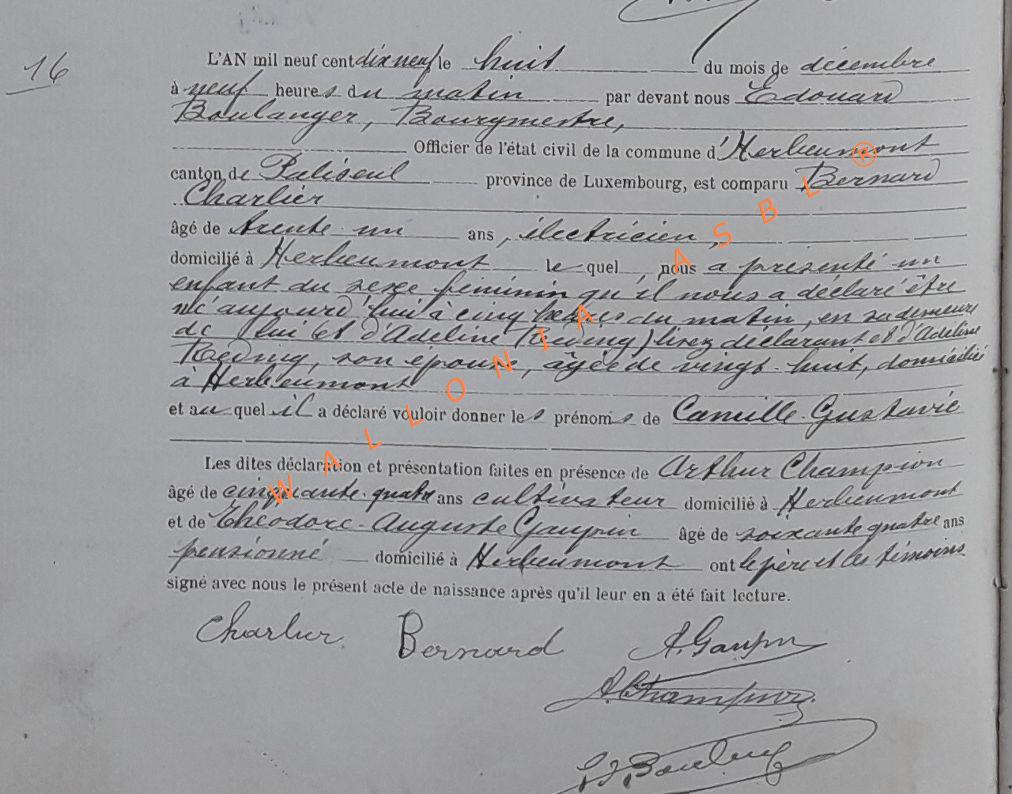 16
L'AN mil neuf cent dix neuf le huit du mois de décembre
à neuf heures du matin par devant nous Edouard
Boulanger, Bourgmestre,
Officier de l'état civil de la commune d'Herbeumont
canton de Paliseul province de Luxembourg, est comparu Bernard
Charlier
âgé de trente un ans, électricien,
domicilié à Herbeumont le quel, nous a présenté un
enfant du sexe féminin qu'il nous a déclaré être
né aujourd'hui à cinq heures du matin, en sa demeure
de lui et d'Adeline (Reding) lisez déclarant et d'Adeline
Reding, son épouse, âgée de vingt-huit, domiciliée
à Herbeumont
et au quel il a déclaré vouloir donner les prénoms de Camille-Gustavie
Les dites déclaration et présentation faites en présence de Arthur Champion
âgé de cinquante-quatre ans cultivateur domicilié à Herbeumont
et de Théodore-Auguste Gaupin âgé de soixante quatre ans
pensionné domicilié à Herbeumont ont le père et les témoins
signé avec nous le présent acte de naissance après qu'il leur en a été fait lecture.
Charlier Bernard A. Gaupin
A. Champion
WALLONIA ASBL ®